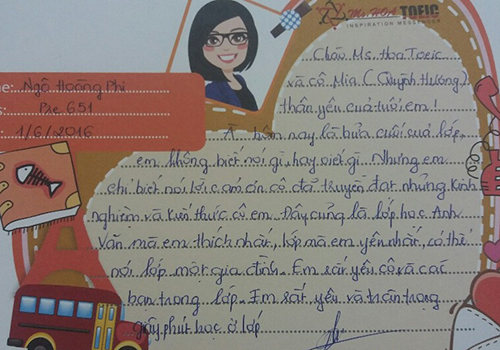 Ms. HOA TOEIC
INSPIRATION MESSENGER
Chào Ms. Hoa Toeic
và cô Mia (Quỳnh Hương)
thân yêu của tuổi em!
me: Ngô Hoàng Phi
s: Pre 651
: 1/6/2016
À hôm nay là bữa cuối của lớp,
em không biết nói gì, hay viết gì. Nhưng em
chỉ biết nói lời cảm ơn cô đã truyền đạt những kinh
nghiệm và kiến thức cô em. Đây cũng là lớp học Anh
Văn mà em thích nhất, lớp mà em yên nhất, có thể
nói lớp một gia đình. Em rất yêu cô và các
bạn trong lớp. Em rất yêu và trân trọng
giây phút học ở lớp